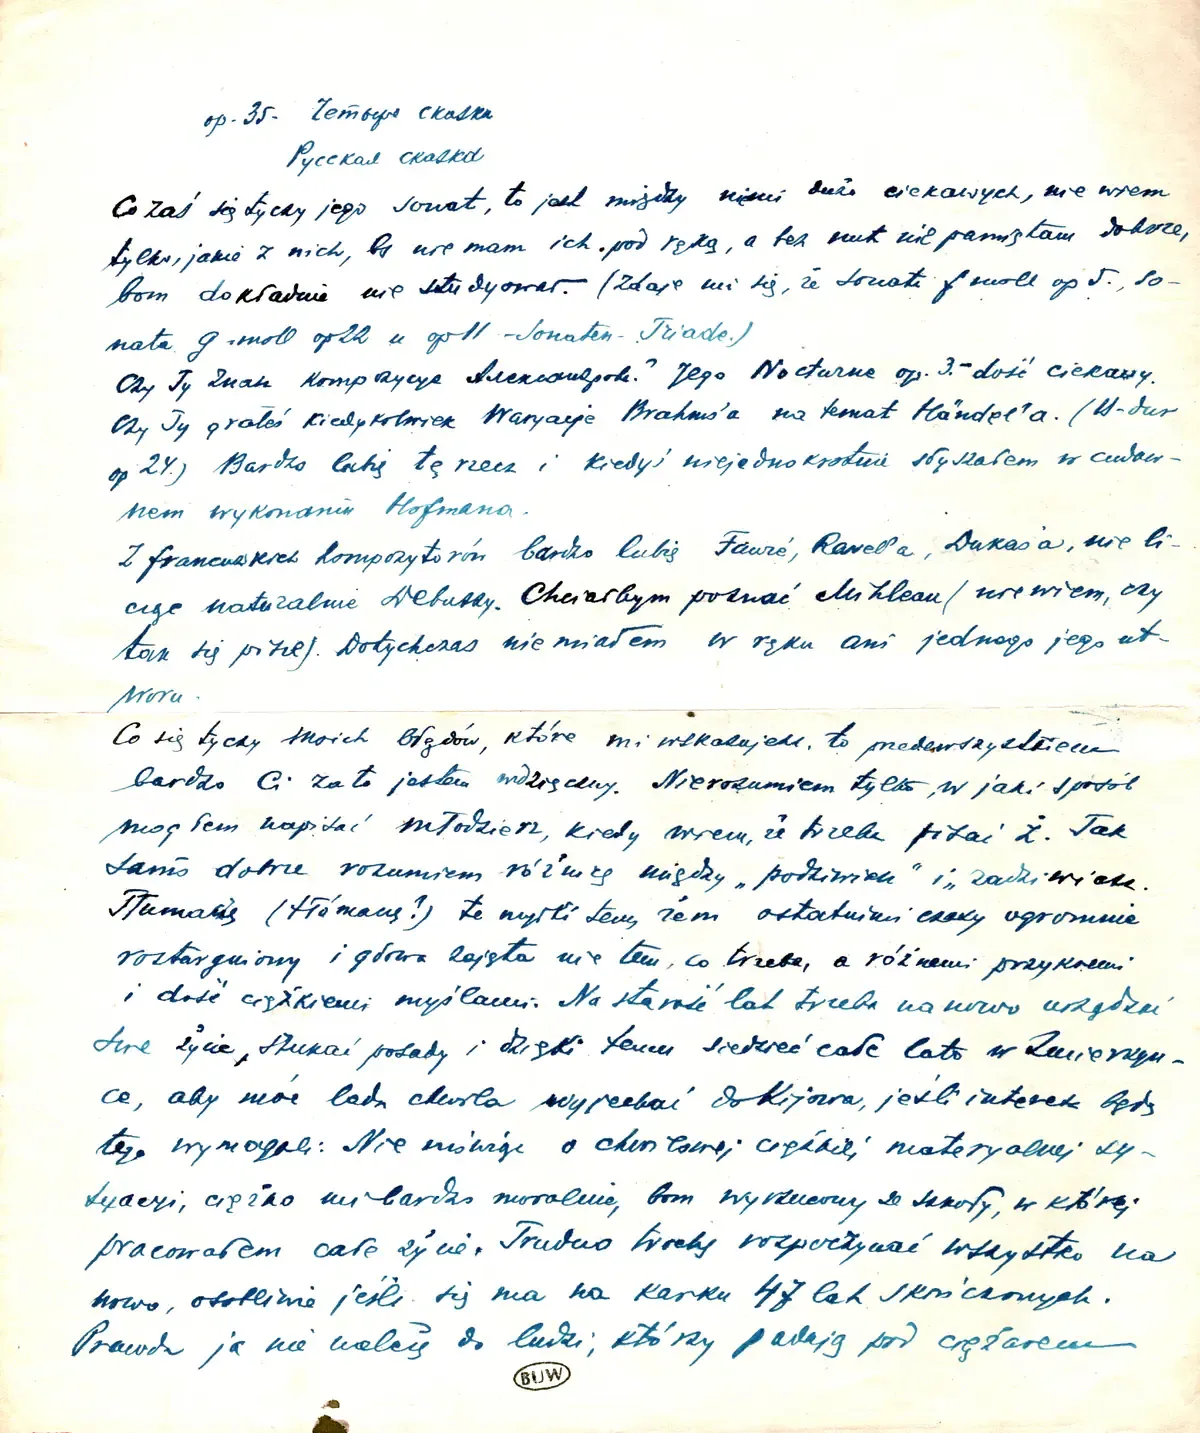 op. 35- Четыре сказки
Русская сказка
Co zaś się tyczy jego sonat, to jest między nimi dużo ciekawych, nie wiem
tylko, jakie z nich, bo nie mam ich pod ręką, a bez nut nie pamiętam dobrze,
bom dokładnie nie studyował. (Zdaje mi się, że sonata f moll op 5., So-
nata g-moll op 22 и op 11 -Sonaten- Triade.)
Czy Ty znasz kompozycye Александров.? Jego Nocturne op. 3.- dość ciekawy.
Czy Ty grałeś kiedykolwiek Waryacje Brahms'a na temat Händel'a. (B-dur
op 24.) Bardzo lubię tę rzecz i kiedyś niejednokrotnie słyszałem w cudow-
nem wykonaniu Hofmana.
Z francuskich kompozytorów bardzo lubię Fauré, Ravel'a, Dukas'a, nie li-
cząc naturalnie Debussy. Chciałbym poznać Mihleau (nie wiem, czy
tak się pisze). Dotychczas nie miałem w ręku ani jednego jego ut-
woru.
Co się tyczy moich błędów, które mi wskazujesz, to przedewszystkiem
bardzo Ci za to jestem wdzięczny. Nie rozumiem tylko, w jaki sposób
mogłem napisać młodzierz, kiedy wiem, że trzeba pisać ż. Tak
samo dobrze rozumiem różnicę między „podziwiać" i „zadziwiać.
Tłumaczę (tłómaczę?) te myłki tem, żem ostatnimi czasy ogromnie
roztargniony i głowa zajęta nie tem, co trzeba, a różnemi przykremi
i dość ciężkiemi myślami. Na starość lat trzeba na nowo urządzać
swe życie, szukać posady i dzięki temu siedzieć całe lato w Żmierzyn-
ce, aby móc lada chwila wyjechać do Kijowa, jeśli interesa będą
tego wymagali. Nie mówię o chwilowej ciężkiej materyalnej sy-
tuacyi, ciężko mi bardzo moralnie, bom wyrzucony ze szkoły, w której
pracowałem całe życie. Trudno trochę rozpoczynać wszystko na
nowo, osobliwie jeśli się ma na karku 47 lat skończonych.
Prawda ja nie należę do ludzi, którzy padają pod ciężarem
BUW